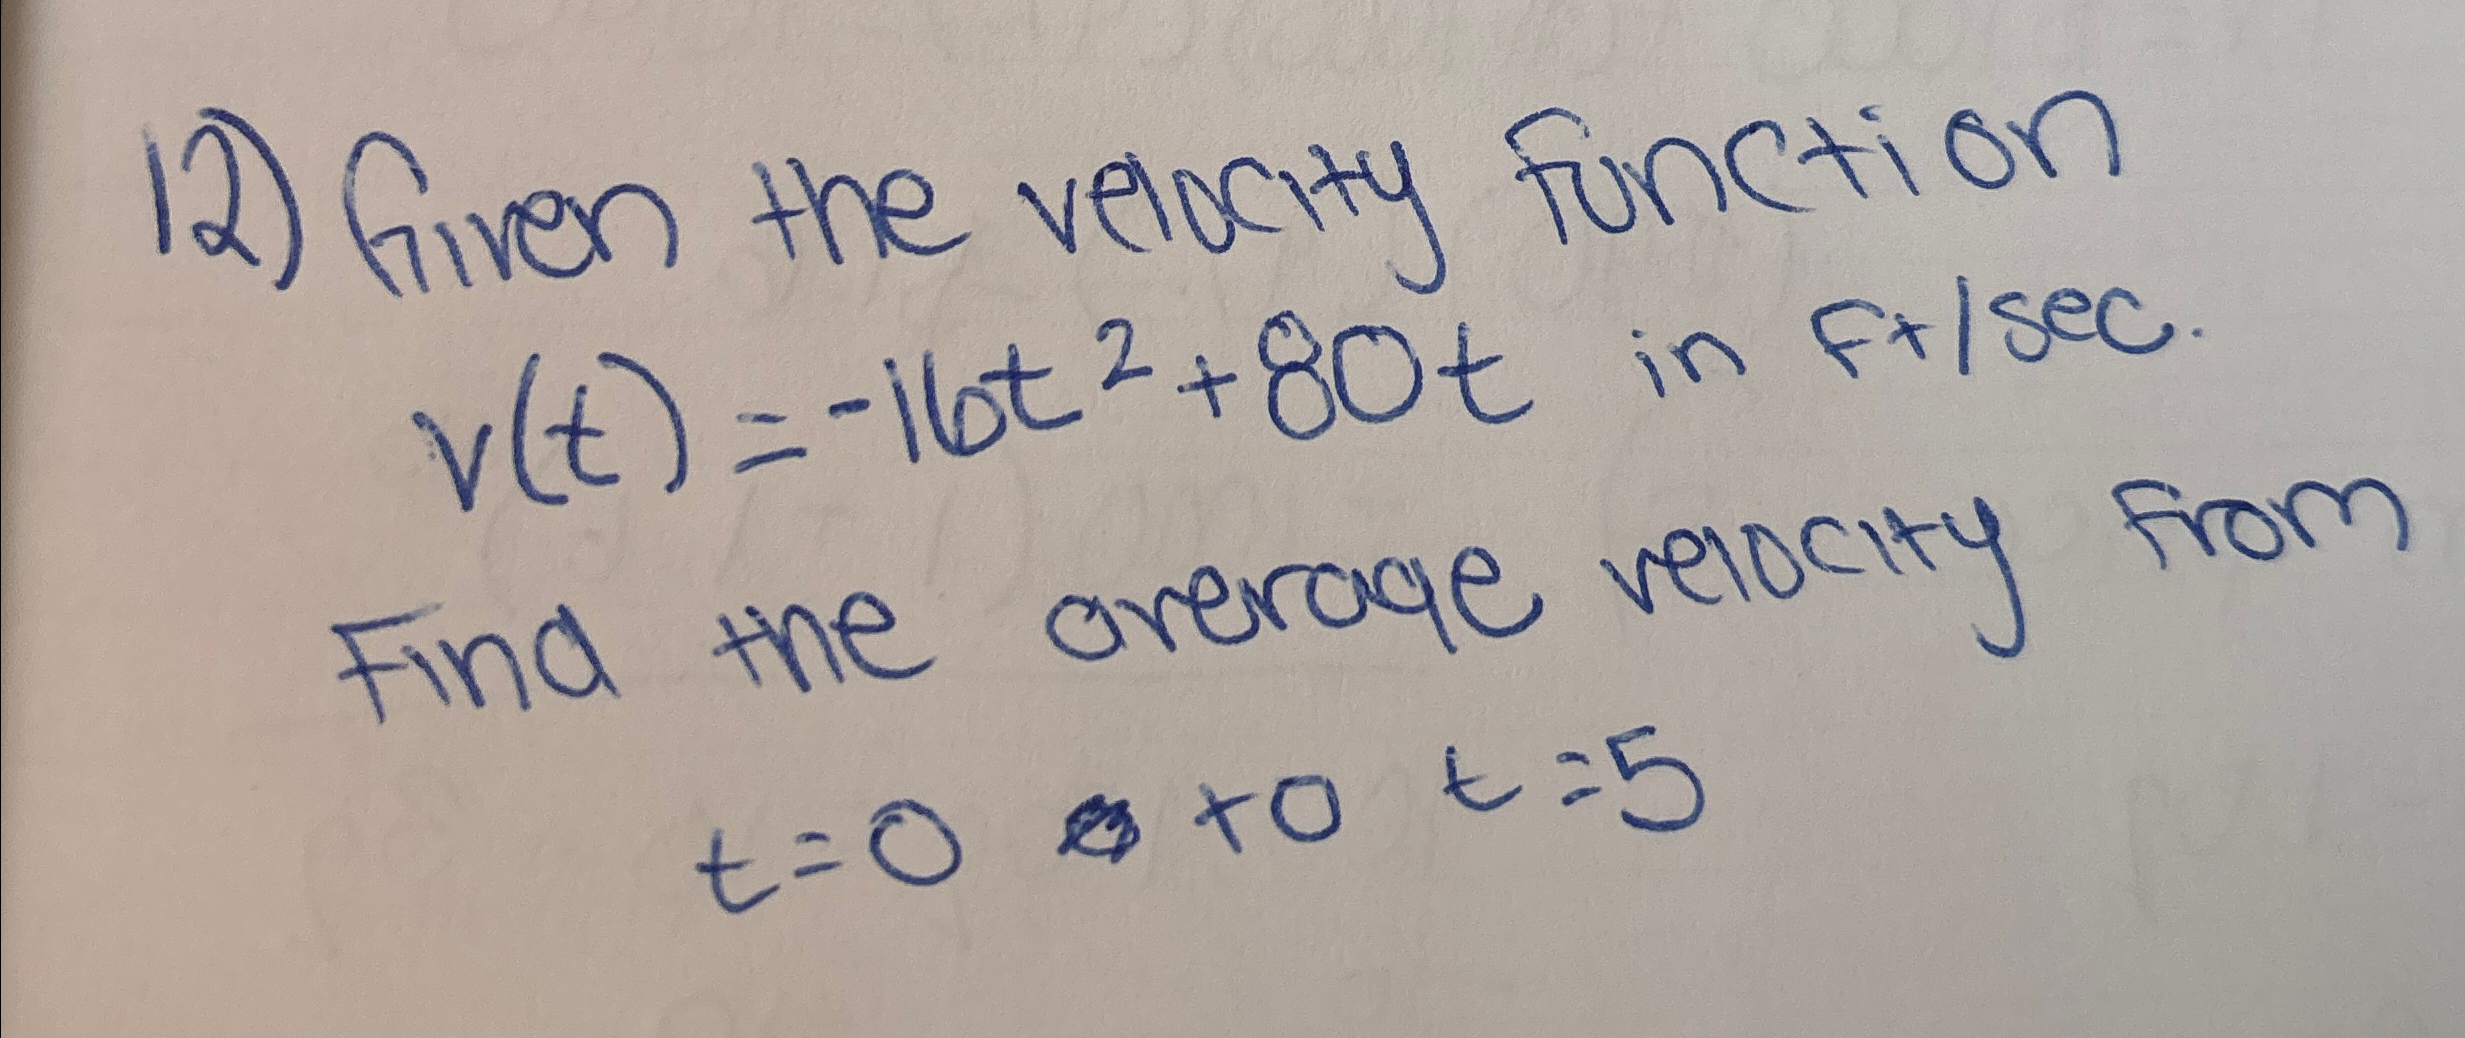 12) Given the velocity function
v(t) = -16t² + 80t in ft/sec.
Find the average velocity from
t=0 to t=5